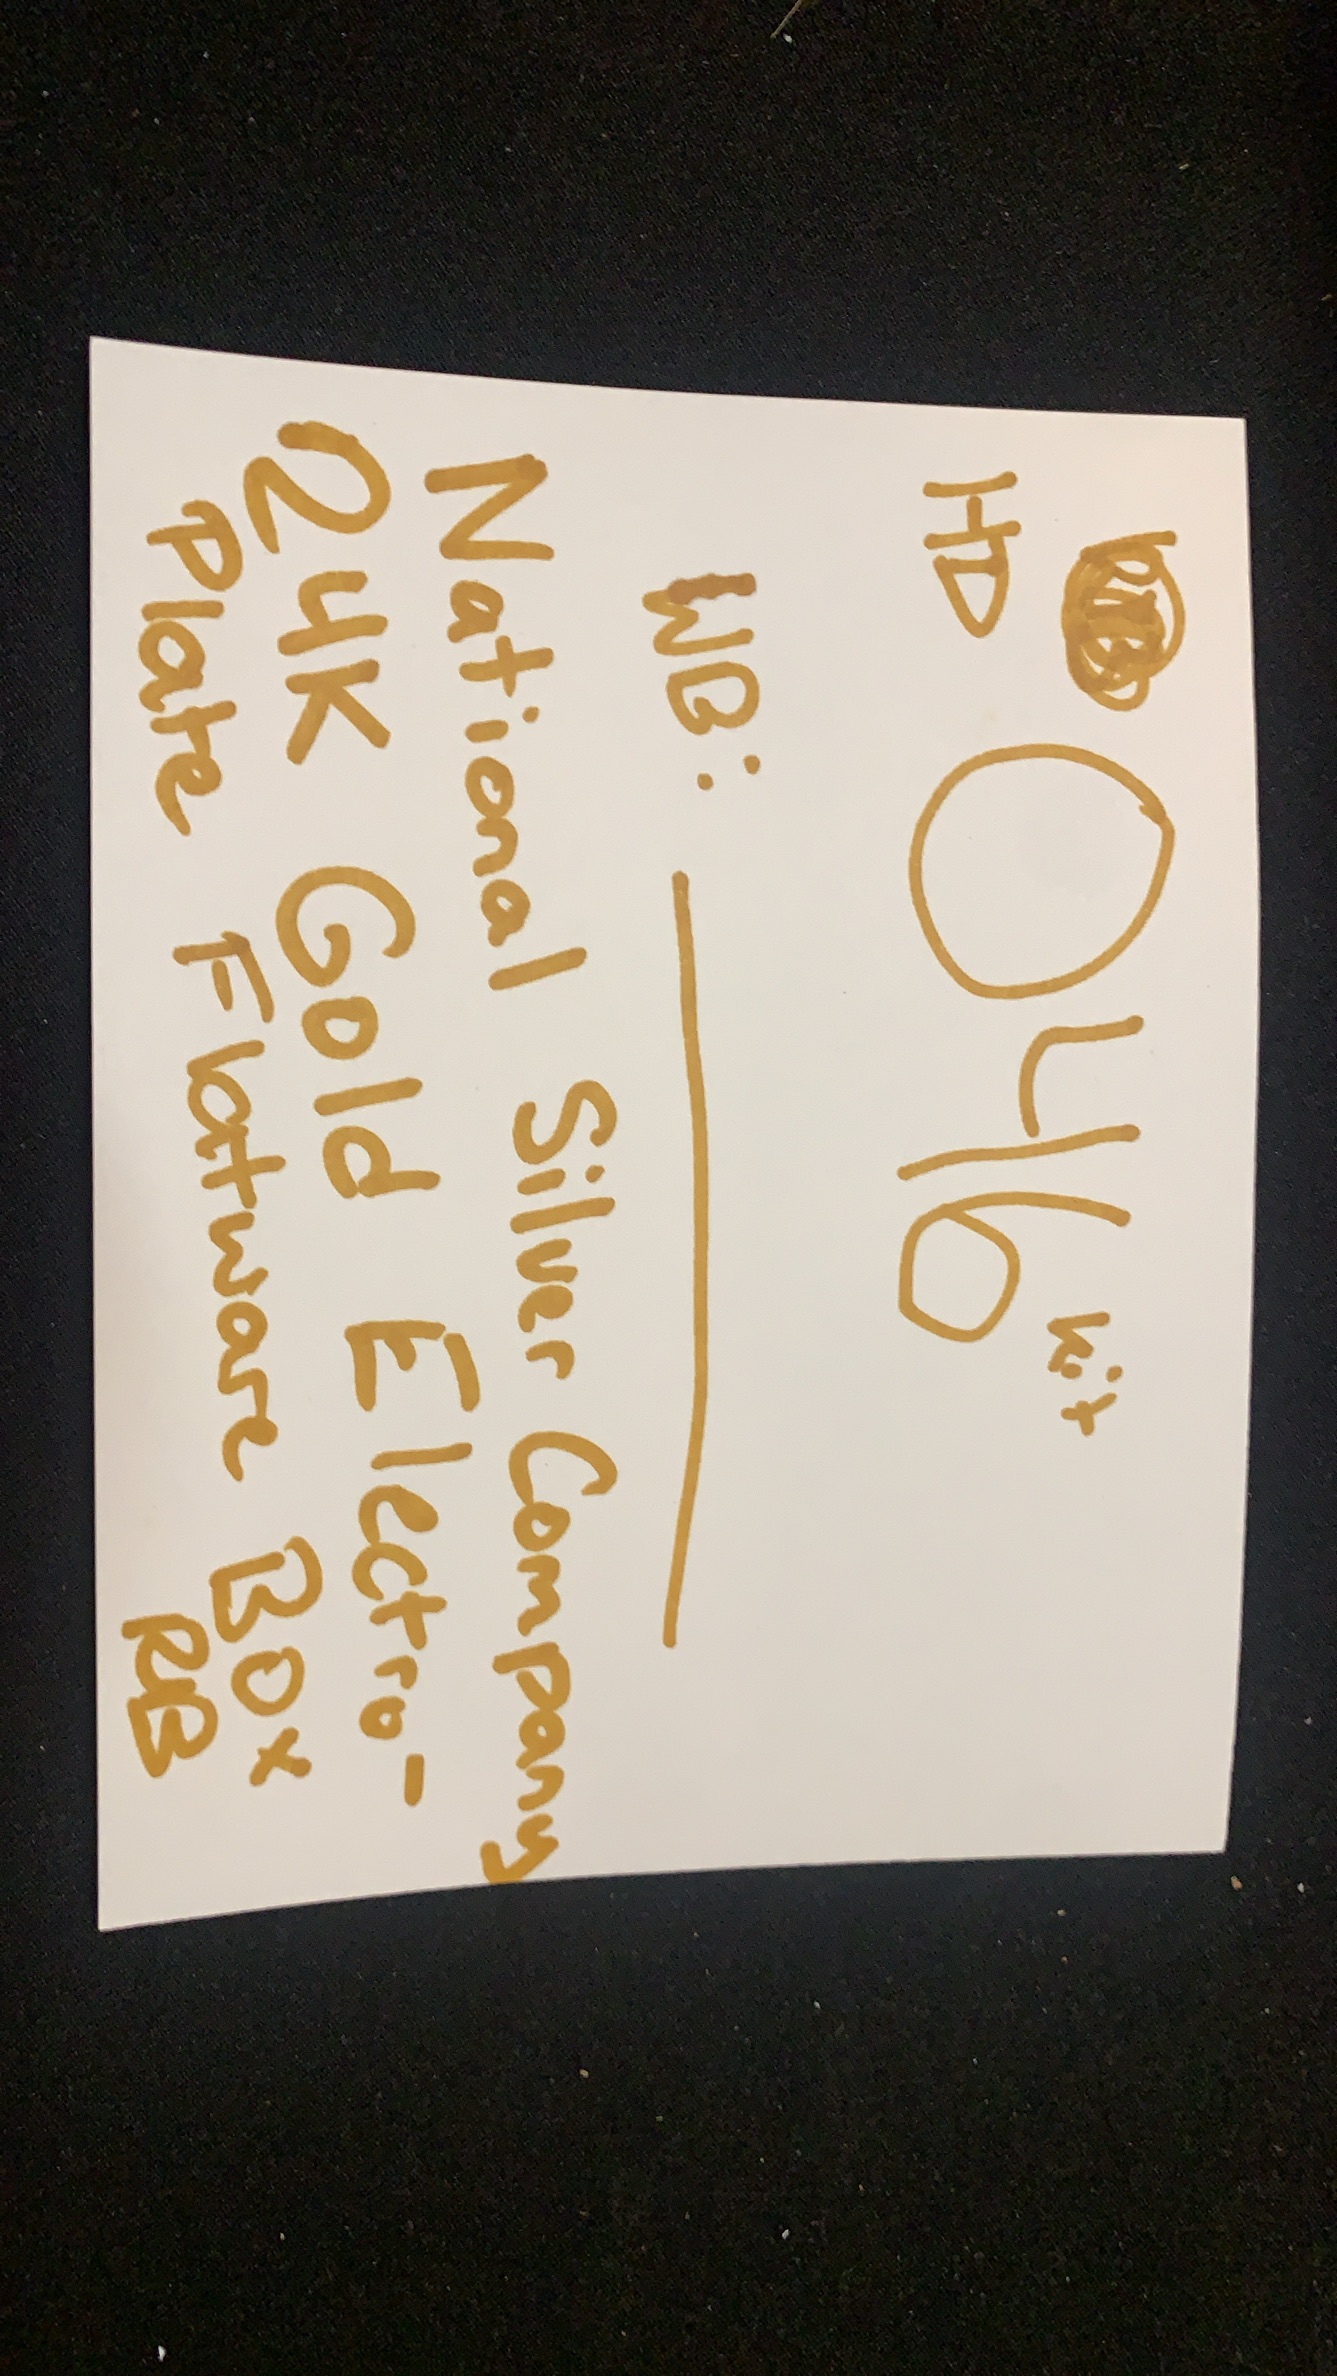 HD 046 Kit
WB:
National Silver Company
24K Gold Electro-
Plate Flatware Box
RB